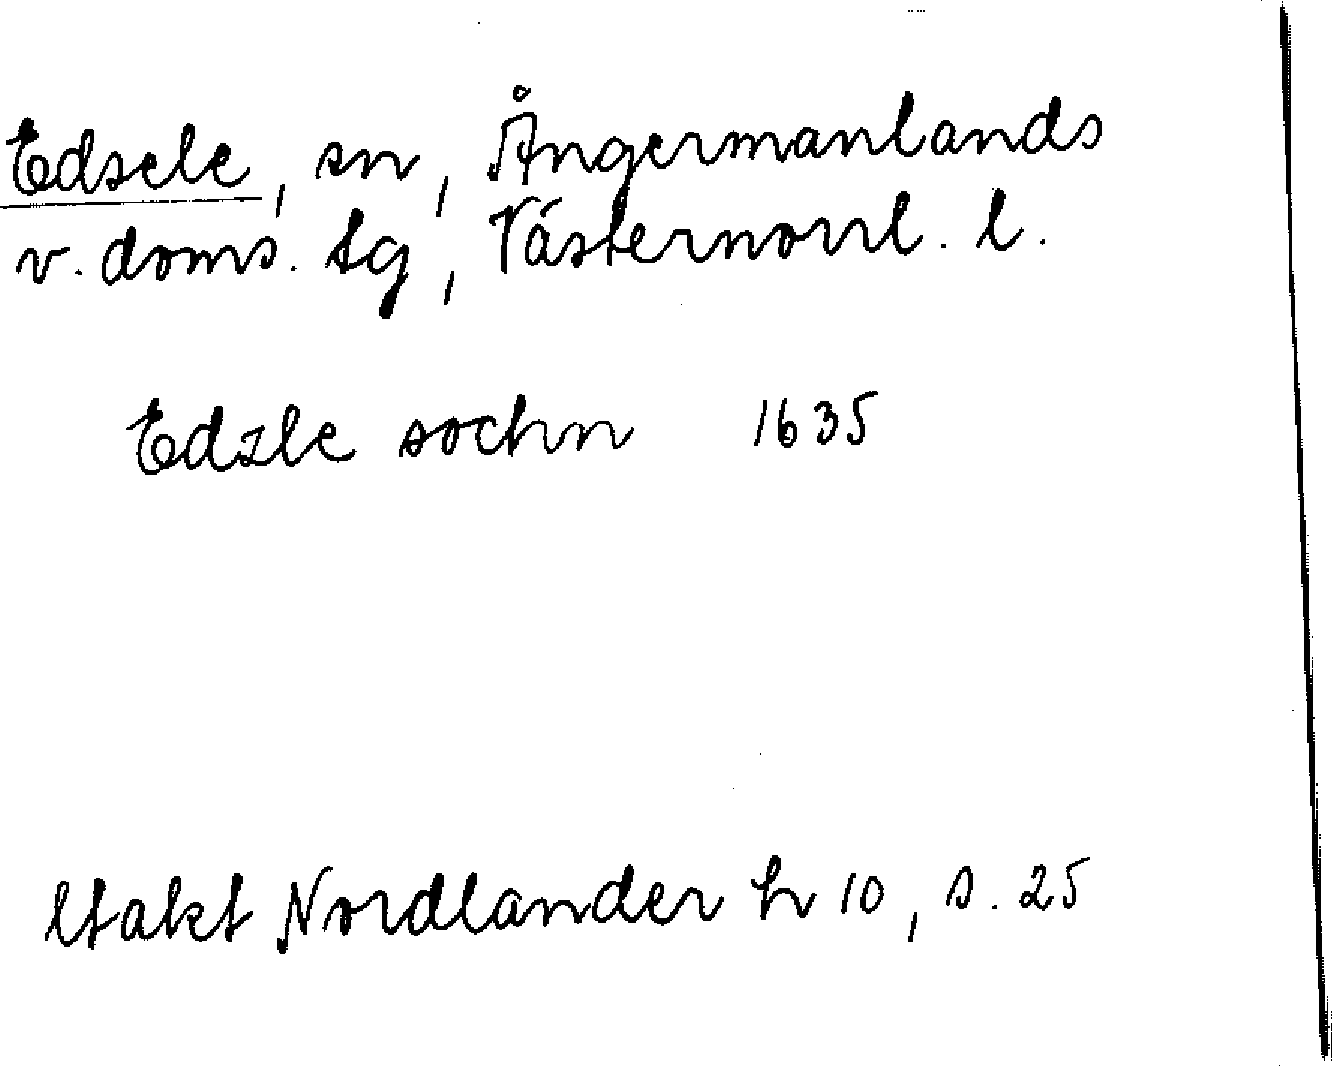 Edsele, sn, Ångermanlands
v. doms. tg, Västernorrl. l.
Edzle sochn 1635
Utakt Nordlander h 10, s. 25